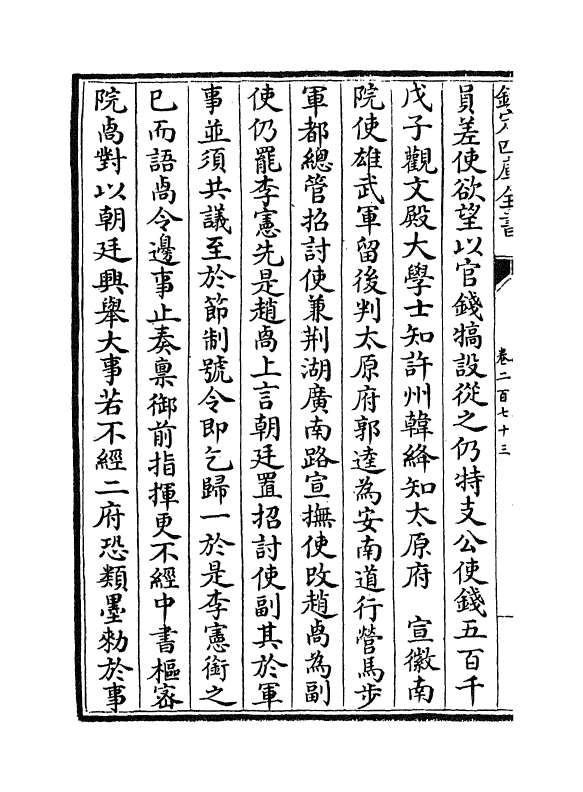 欽定四庫全書
卷二百七十三
員差使欲望以官錢犒設從之仍特支公使錢五百千
戊子觀文殿大學士知許州韓絳知太原府　宣徽南
院使雄武軍留後判太原府郭逵為安南道行營馬步
軍都總管招討使兼荆湖廣南路宣撫使改趙卨為副
使仍罷李憲先是趙卨上言朝廷置招討使副其於軍
事並須共議至於節制號令即乞歸一於是李憲銜之
已而語卨令邊事止奏禀御前指揮更不經中書樞密
院卨對以朝廷興舉大事若不經二府恐類墨勑於事